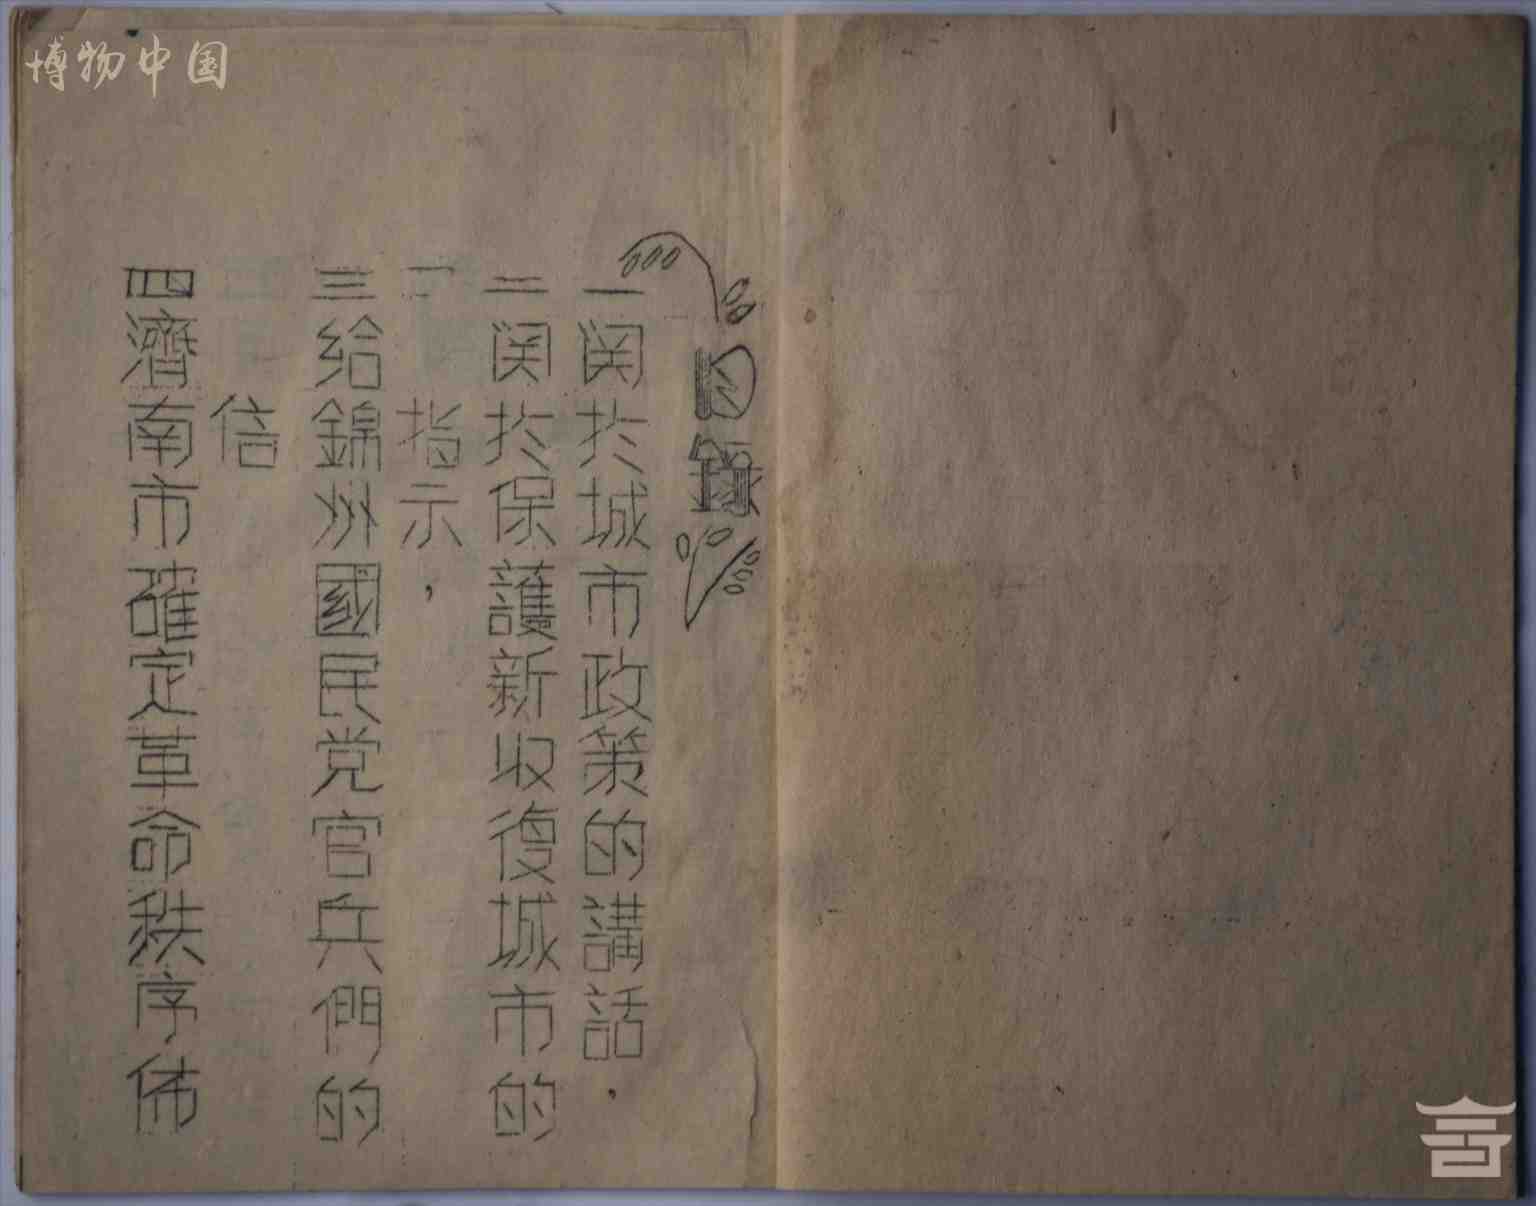 博物中国
目錄
一関扵城市政策的講話，
二関扵保護新收復城市的
指示，
三給錦州國民党官兵們的
信
四濟南市確定革命秩序佈